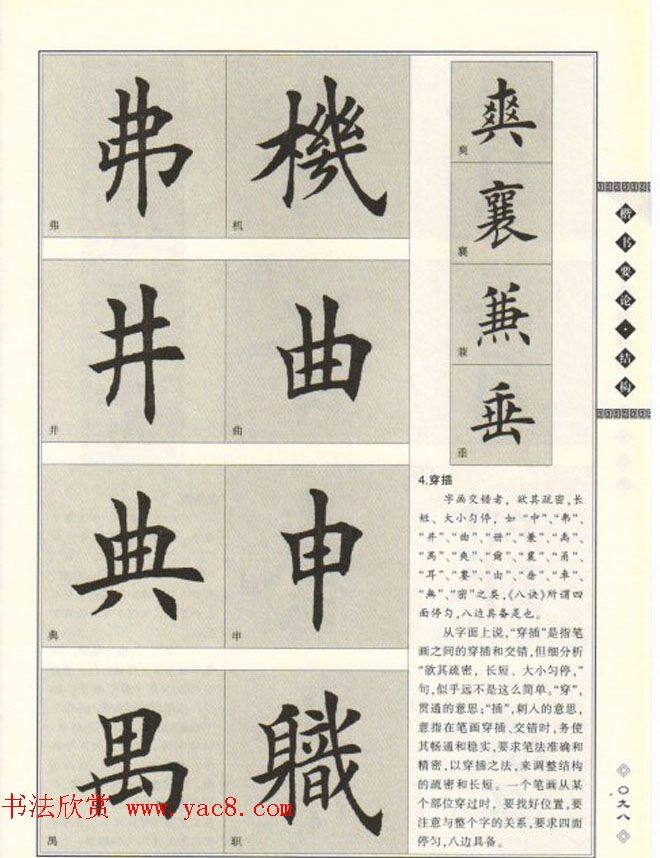 弗
弗
機
机
爽
爽
襄
襄
兼
兼
垂
垂
井
井
曲
曲
典
典
申
申
禺
禺
職
职
4.穿插
字画交错者，欲其疏密,长
短、大小匀停，如“中”、“弗”、
“井”、“曲”、“册”、“兼”、“禹”、
“禺”、“爽”、“爾”、“襄”、“甬”、
“耳”、“婁”、“由”、“垂”、“車”、
“無”、“密”之类，《八诀》所谓四
面停匀，八边具备是也。
从字面上说，“穿插”是指笔
画之间的穿插和交错,但细分析
“欲其疏密，长短、大小匀停,”
句,似乎远不是这么简单。“穿”,
贯通的意思;“插”,刺入的意思,
意指在笔画穿插、交错时,务使
其畅通和稳实,要求笔法准确和
精密,以穿插之法,来调整结构
的疏密和长短。一个笔画从某
个部位穿过时，要找好位置,要
注意与整个字的关系,要求四面
停匀,八边具备。
楷书要论·结构
〇九八
书法欣赏 www.yac8.com